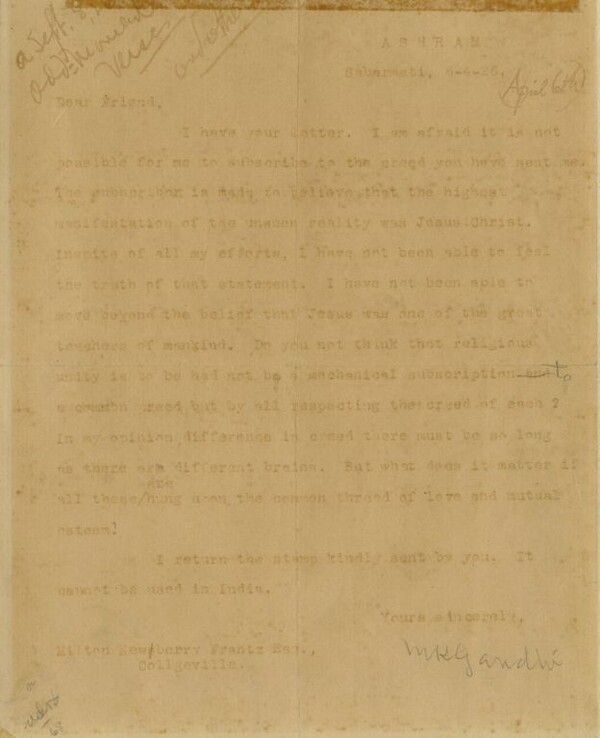 a Jeff.
Verse
and other
A S H R A M
Sabarmati, 6-4-26.
(April 6th)
Dear Friend,
I have your letter. I am afraid it is not
possible for me to subscribe to the creed you have sent me.
The subscriber is made to believe that the highest
manifestation of the unseen reality was Jesus Christ.
Inspite of all my efforts, I have not been able to feel
the truth of that statement. I have not been able to
move beyond the belief that Jesus was one of the great
teachers of mankind. Do you not think that religious
unity is to be had not by a mechanical subscription and to
a common creed but by all respecting the creed of each?
In my opinion difference in creed there must be so long
as there are different brains. But what does it matter if
all these are/hung upon the common thread of love and mutual
esteem!
I return the stamp kindly sent by you. It
cannot be used in India.
Yours sincerely,
MKGandhi
Milton Newberry Frantz Esq.,
Collgeville.